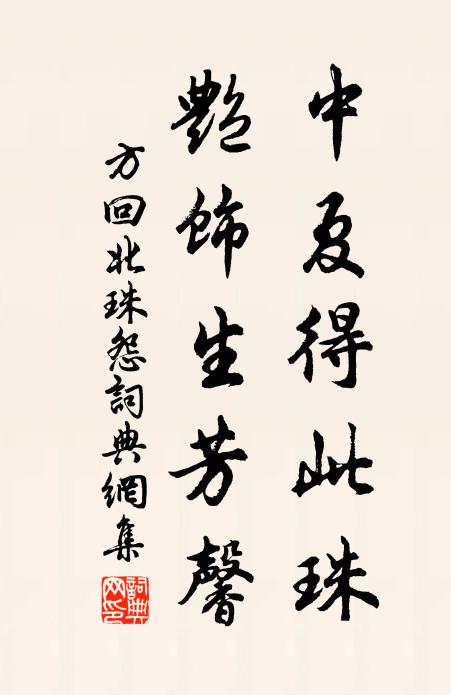 中夏得此珠
艷飾生芳馨
方回北珠怨詞典網集
詞典
网印